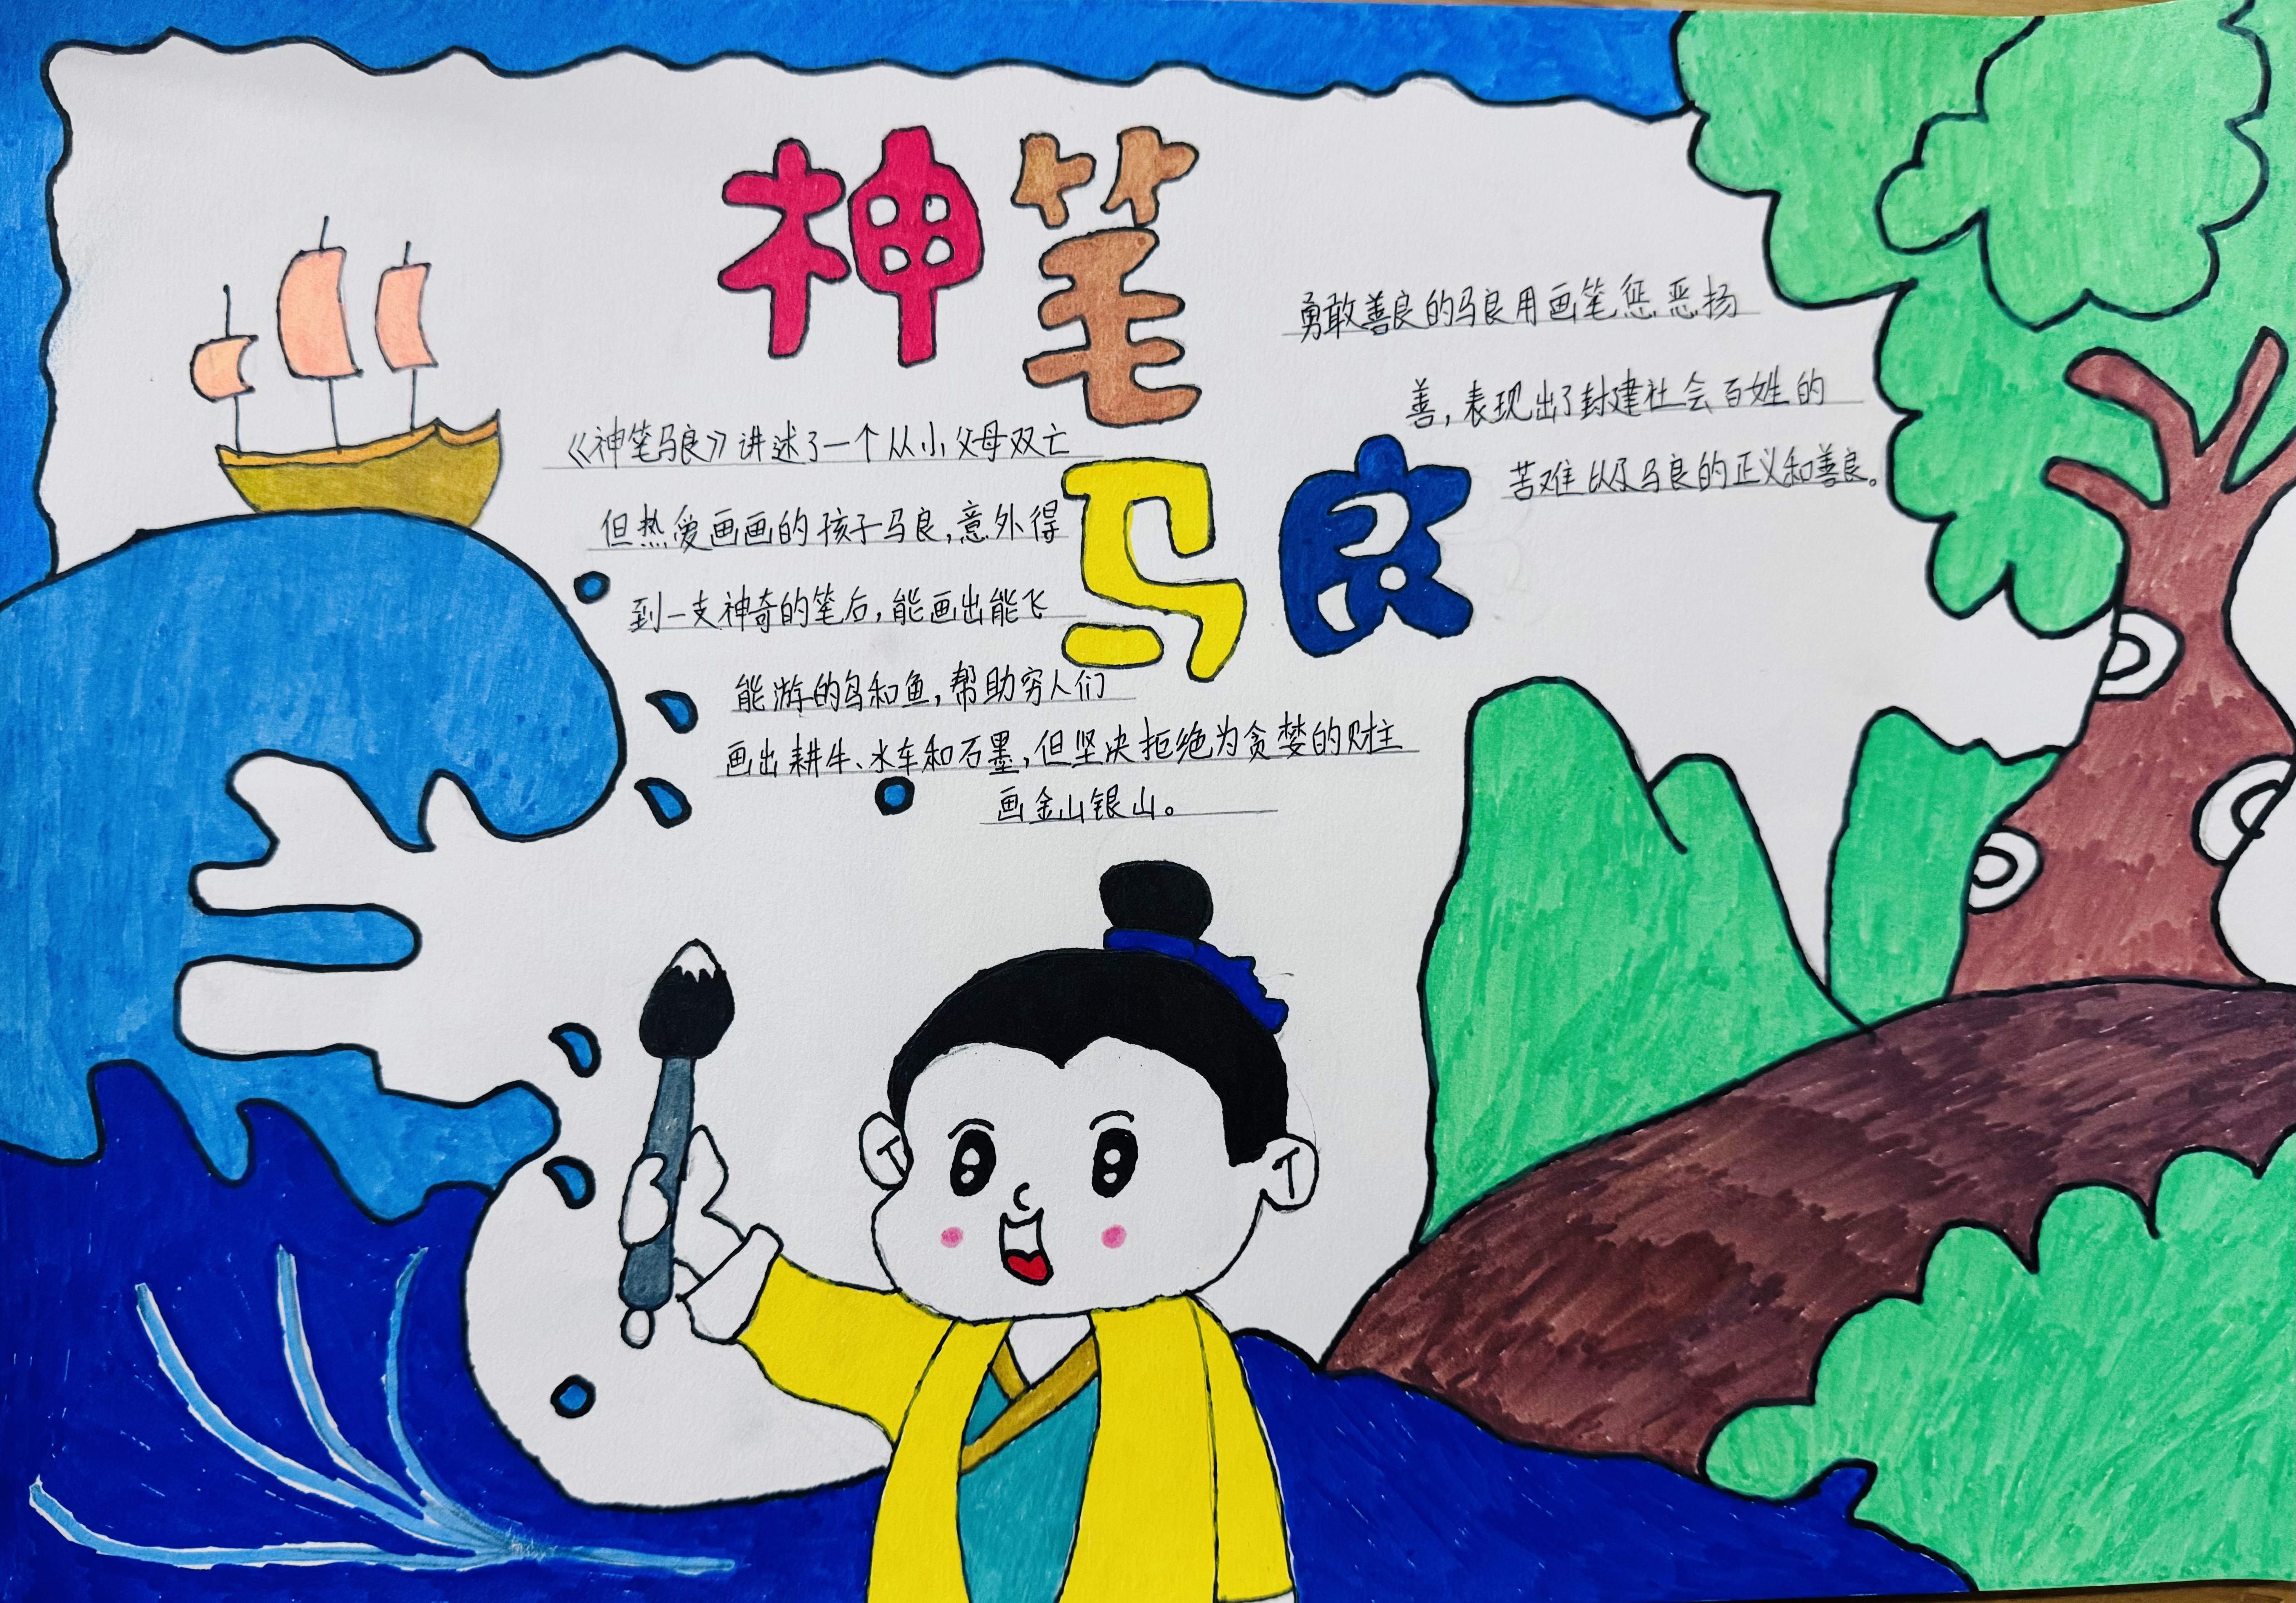 神笔马良
《神笔马良》讲述了一个从小父母双亡
但热爱画画的孩子马良,意外得
到一支神奇的笔后,能画出能飞
能游的鸟和鱼,帮助穷人们
画出耕牛、水车和石墨,但坚决拒绝为贪婪的财主
画金山银山。
勇敢善良的马良用画笔惩恶扬
善,表现出了封建社会百姓的
苦难以及马良的正义和善良。